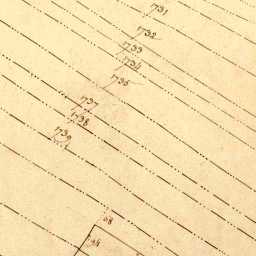 1731
1732
1733
1734
1735
1737
1738
1739
68